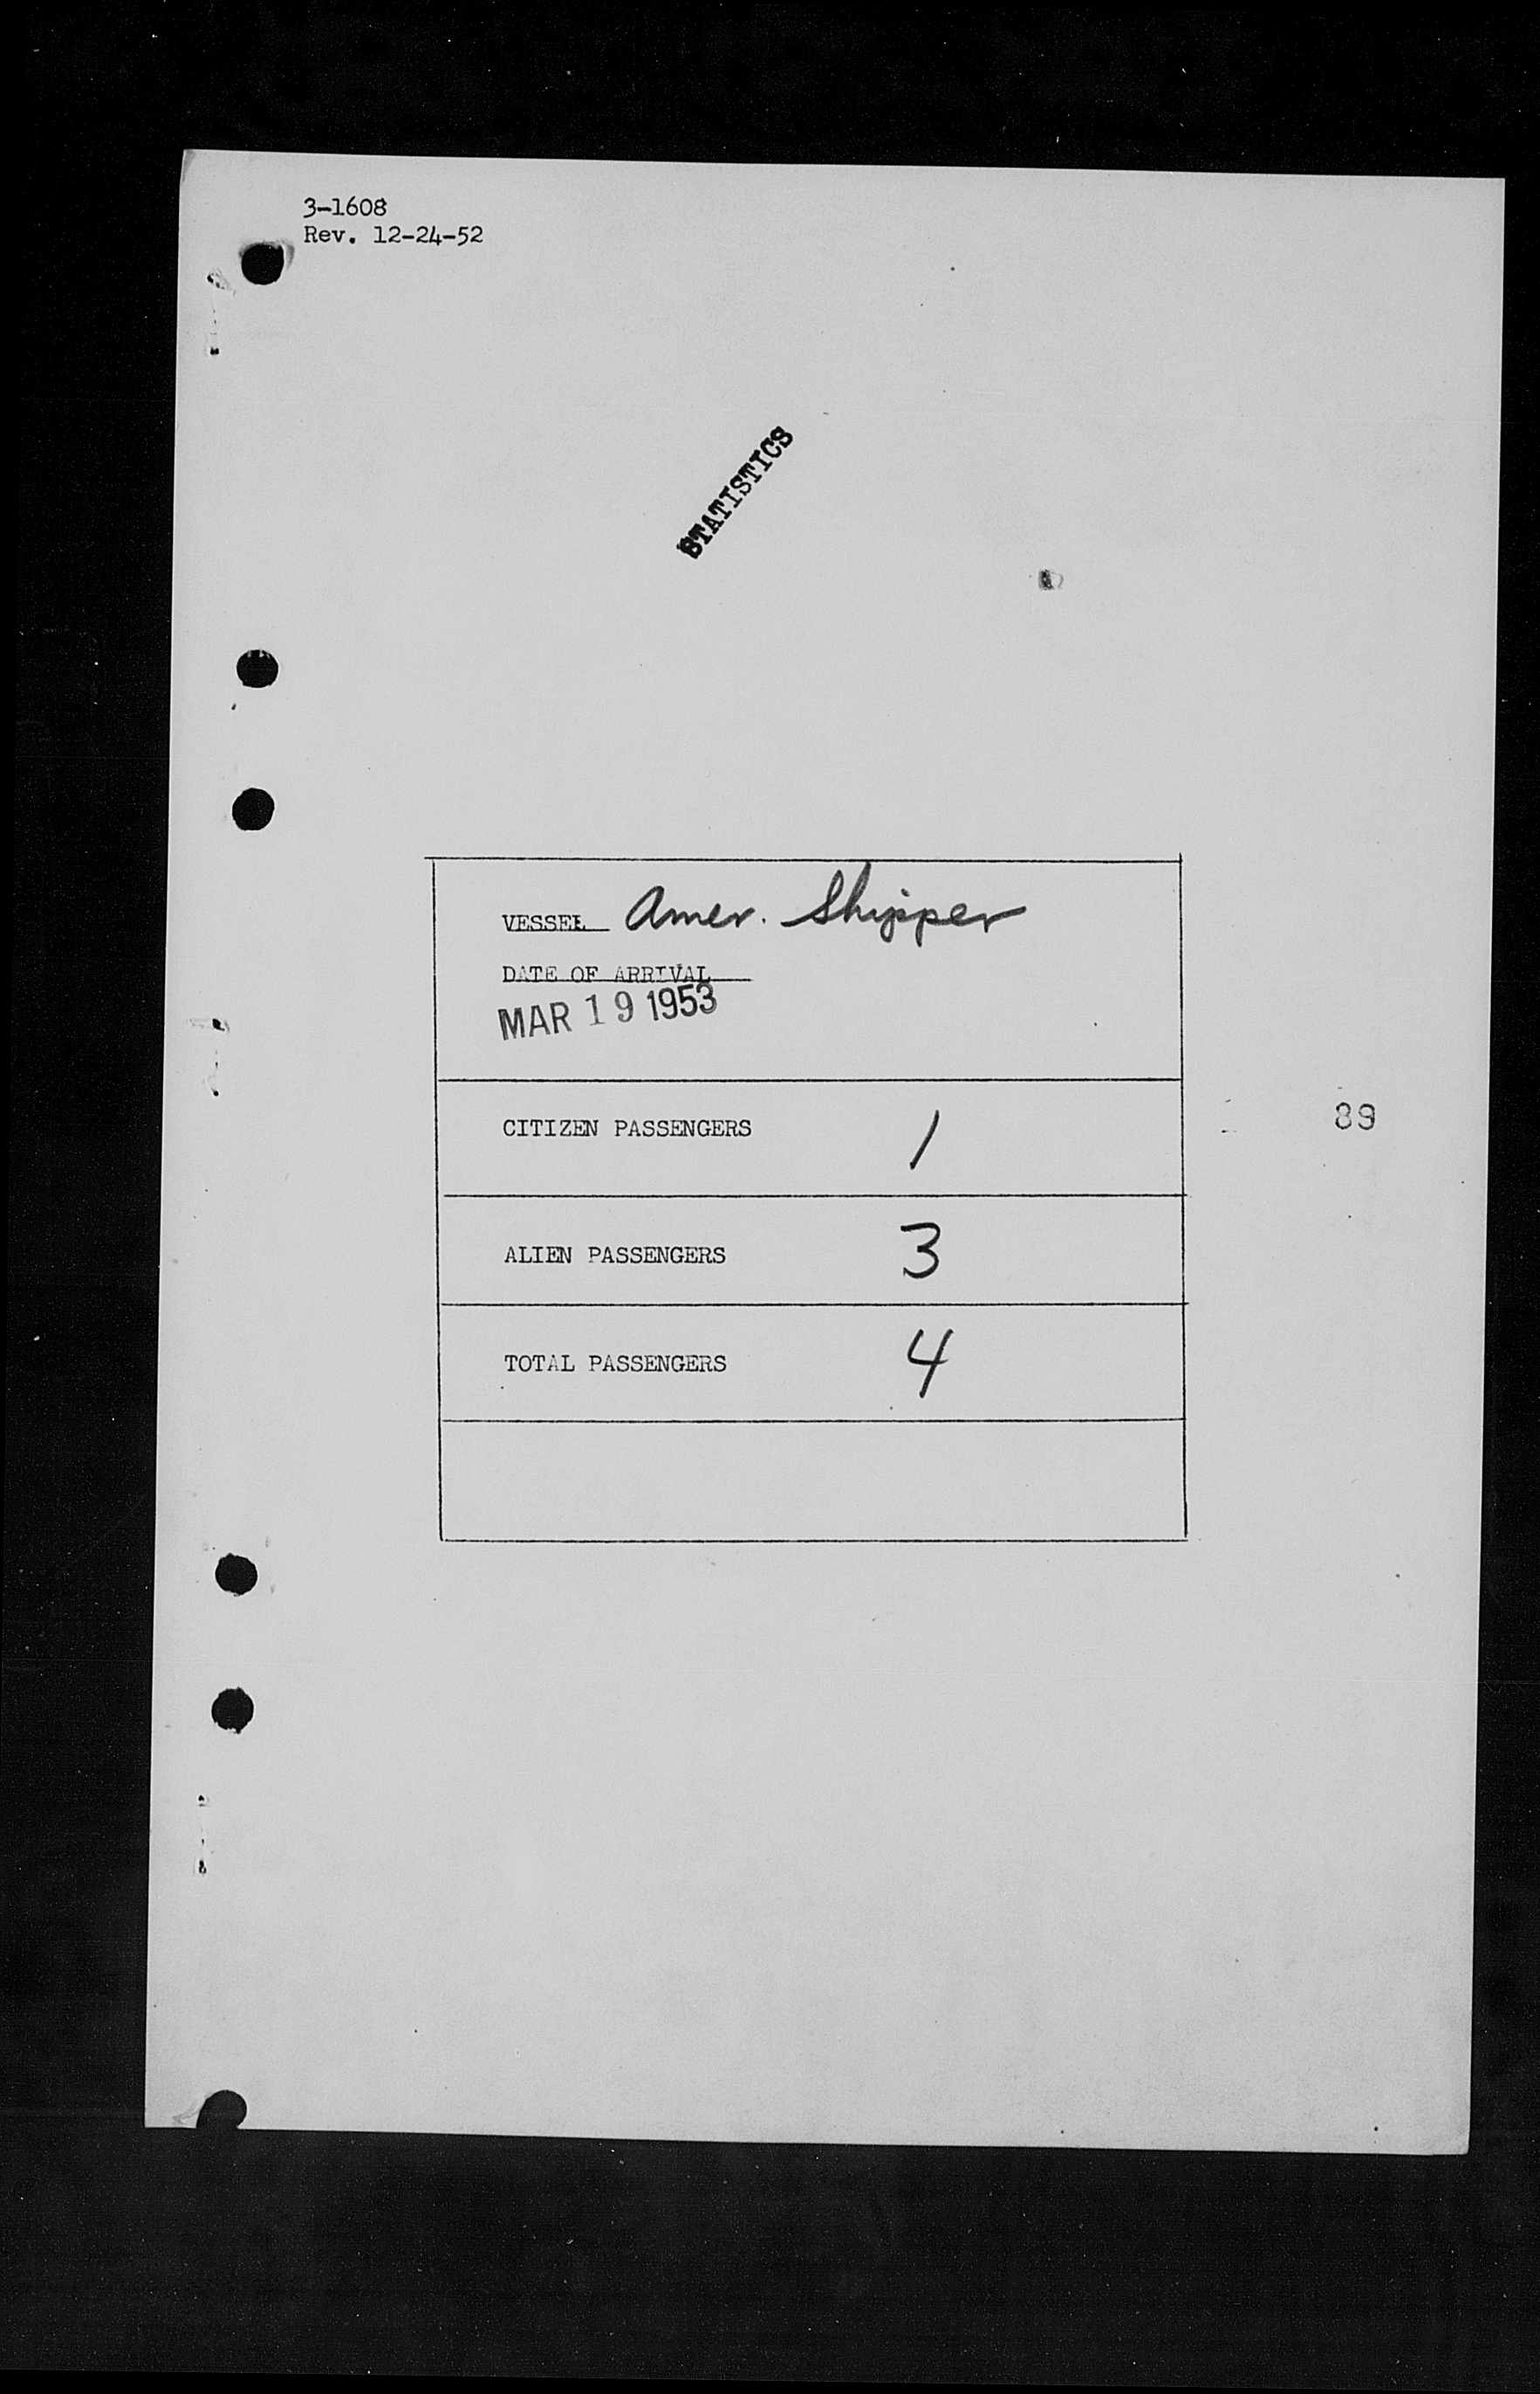 3-1608
Rev. 12-24-52
STATISTICS
VESSEL Amer. Shipper
DATE OF ARRIVAL
MAR 19 1953
CITIZEN PASSENGERS 1
89
ALIEN PASSENGERS 3
TOTAL PASSENGERS 4